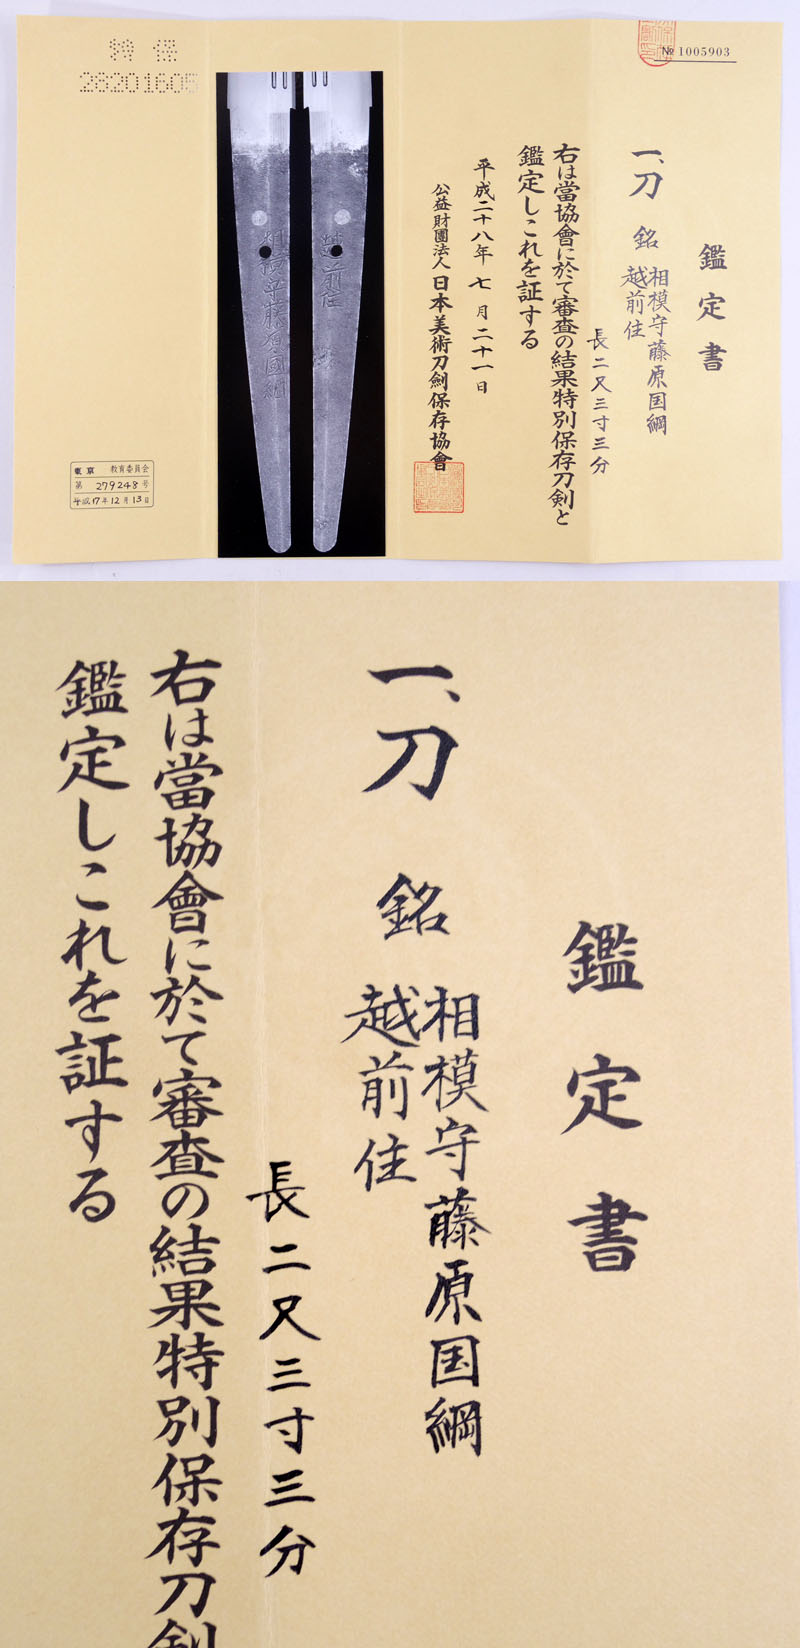 № 1005903
鑑定書
一、刀 銘 相模守藤原国綱
越前住
長二尺三寸三分
右は當協會に於て審査の結果特別保存刀剣と
鑑定しこれを証する
平成二十八年七月二十一日
公益財團法人日本美術刀劍保存協會
特保
28201605
東京 教育委員会
第 279248 号
平成17年12月13日
越前住
鑑定書
一、刀 銘 相模守藤原国綱
越前住
長二尺三寸三分
右は當協會に於て審査の結果特別保存刀剣
鑑定しこれを証する